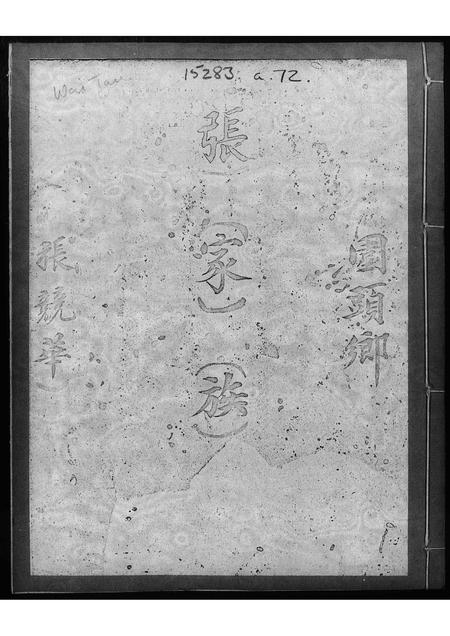 15283. a. 72.
Wai Tau
圍頭鄉
張（家）（族）
張競華